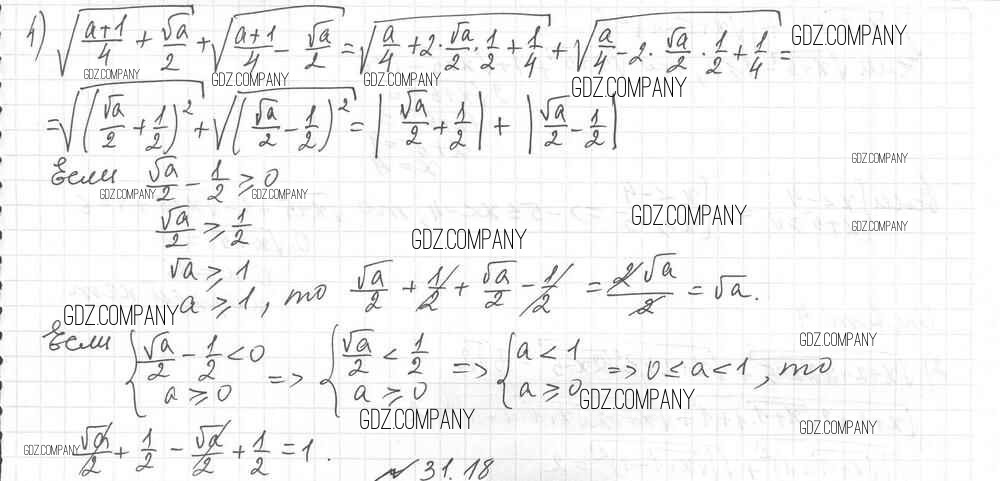 4) √((a+1)/4 + √a/2) + √((a+1)/4 - √a/2) = √(a/4 + 2·√a/2·1/2 + 1/4) + √(a/4 - 2·√a/2·1/2 + 1/4) = GDZ.COMPANY
GDZ.COMPANY GDZ.COMPANY GDZ.COMPANY GDZ.COMPANY
GDZ.COMPANY
= √((√a/2 + 1/2)²) + √((√a/2 - 1/2)²) = |√a/2 + 1/2| + |√a/2 - 1/2|
GDZ.COMPANY
Если √a/2 - 1/2 ≥ 0
GDZ.COMPANY GDZ.COMPANY
√a/2 ≥ 1/2
GDZ.COMPANY GDZ.COMPANY GDZ.COMPANY
√a ≥ 1
a ≥ 1, то √a/2 + 1/2 + √a/2 - 1/2 = 2√a/2 = √a.
GDZ.COMPANY
Если {√a/2 - 1/2 < 0 a ≥ 0 => {√a/2 < 1/2 a ≥ 0 => {a < 1 a ≥ 0 => 0 ≤ a < 1, то
GDZ.COMPANY
GDZ.COMPANY
GDZ.COMPANY GDZ.COMPANY
GDZ.COMPANY √a/2 + 1/2 - √a/2 + 1/2 = 1.
№ 31.18